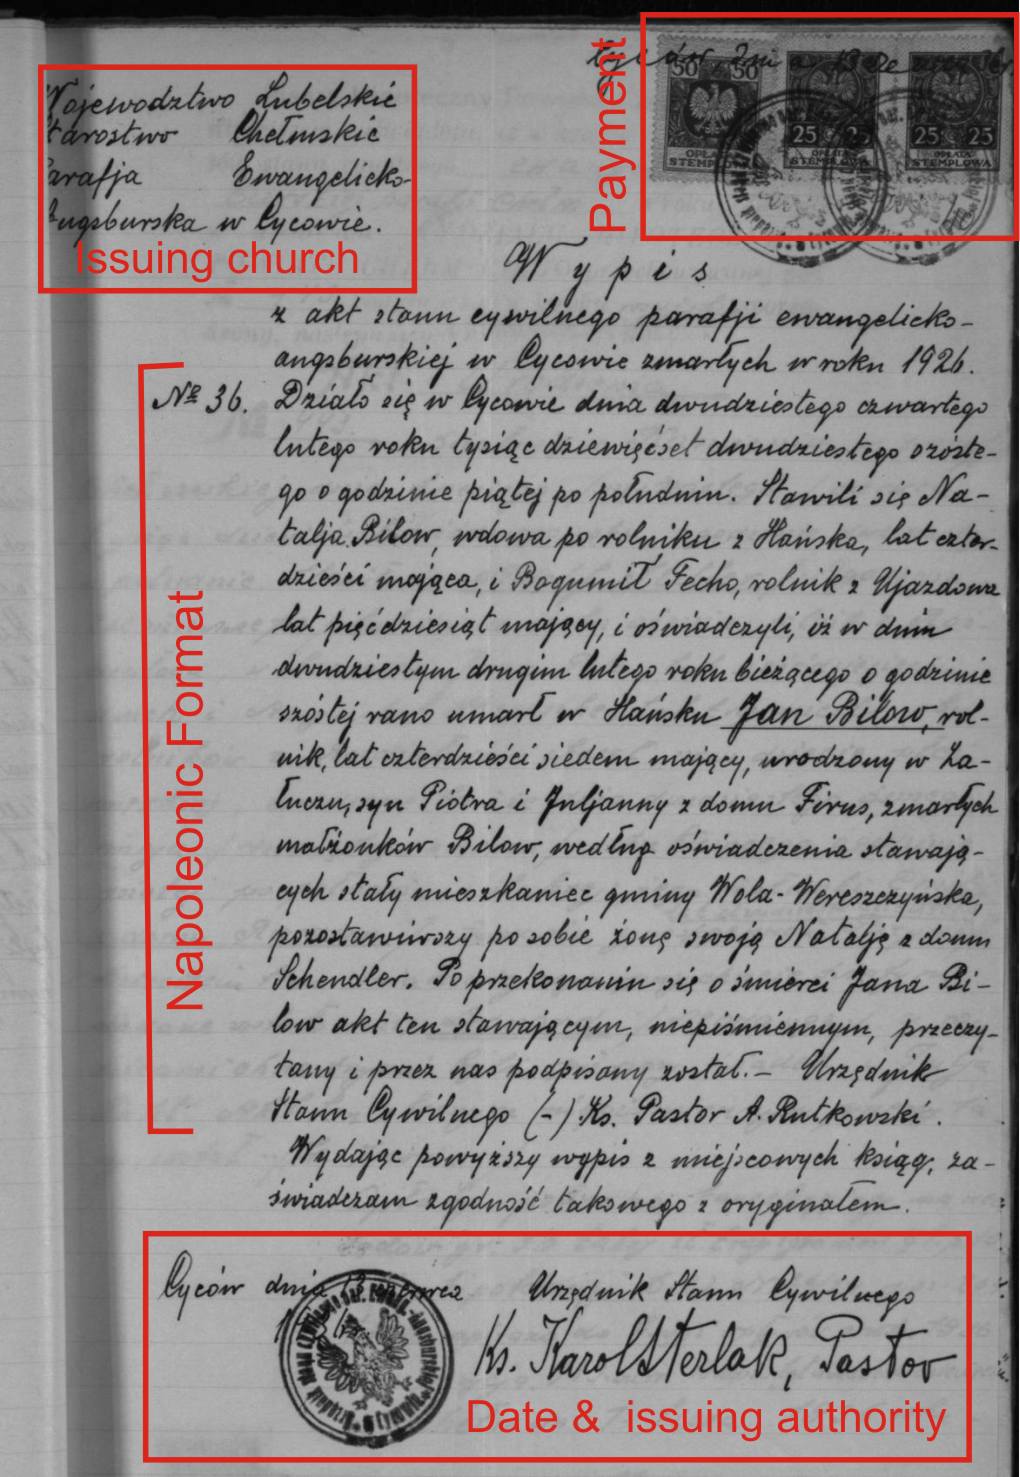 Województwo Lubelskie
Starostwo Chełmskie
Parafja Ewangelicko-
Augsburska w Cycowie.
Issuing church
Payment
50 50
OPŁATA
STEMPLOWA
25 25
OPŁATA
STEMPLOWA
25 25
OPŁATA
STEMPLOWA
Wypis
z akt stanu cywilnego parafji ewangelicko-
augsburskiej w Cycowie zmarłych w roku 1926.
Napoleonic Format
№ 36. Działo się w Cycowie dnia dwudziestego czwartego
lutego roku tysiąc dziewięćset dwudziestego szóste-
go o godzinie piątej po południu. Stawili się Na-
talja Bilow, wdowa po rolniku z Hańska, lat czter-
dzieści mająca, i Bogumił Fecho, rolnik z Ujazdowa
lat pięćdziesiąt mający, i oświadczyli, iż w dniu
dwudziestym drugim lutego roku bieżącego o godzinie
szóstej rano umarł w Hańsku Jan Bilow, rol-
nik, lat czterdzieści siedem mający, urodzony w Za-
łuczu, syn Piotra i Juljanny z domu Firus, zmarłych
małżonków Bilow, według oświadczenia stawają-
cych stały mieszkaniec gminy Wola-Wereszczyńska,
pozostawiwszy po sobie żonę swoją Natalję z domu
Schendler. Po przekonaniu się o śmierci Jana Bi-
low akt ten stawającym, niepiśmiennym, przeczy-
tany i przez nas podpisany został.- Urzędnik
Stanu Cywilnego (-) Ks. Pastor A. Rutkowski.
Wydając powyższy wypis z miejscowych ksiąg, za-
świadczam zgodność takowego z oryginałem.
Cyców dnia 13 czerwca Urzędnik Stanu Cywilnego
Ks. Karol Sterlak, Pastor
Date & issuing authority